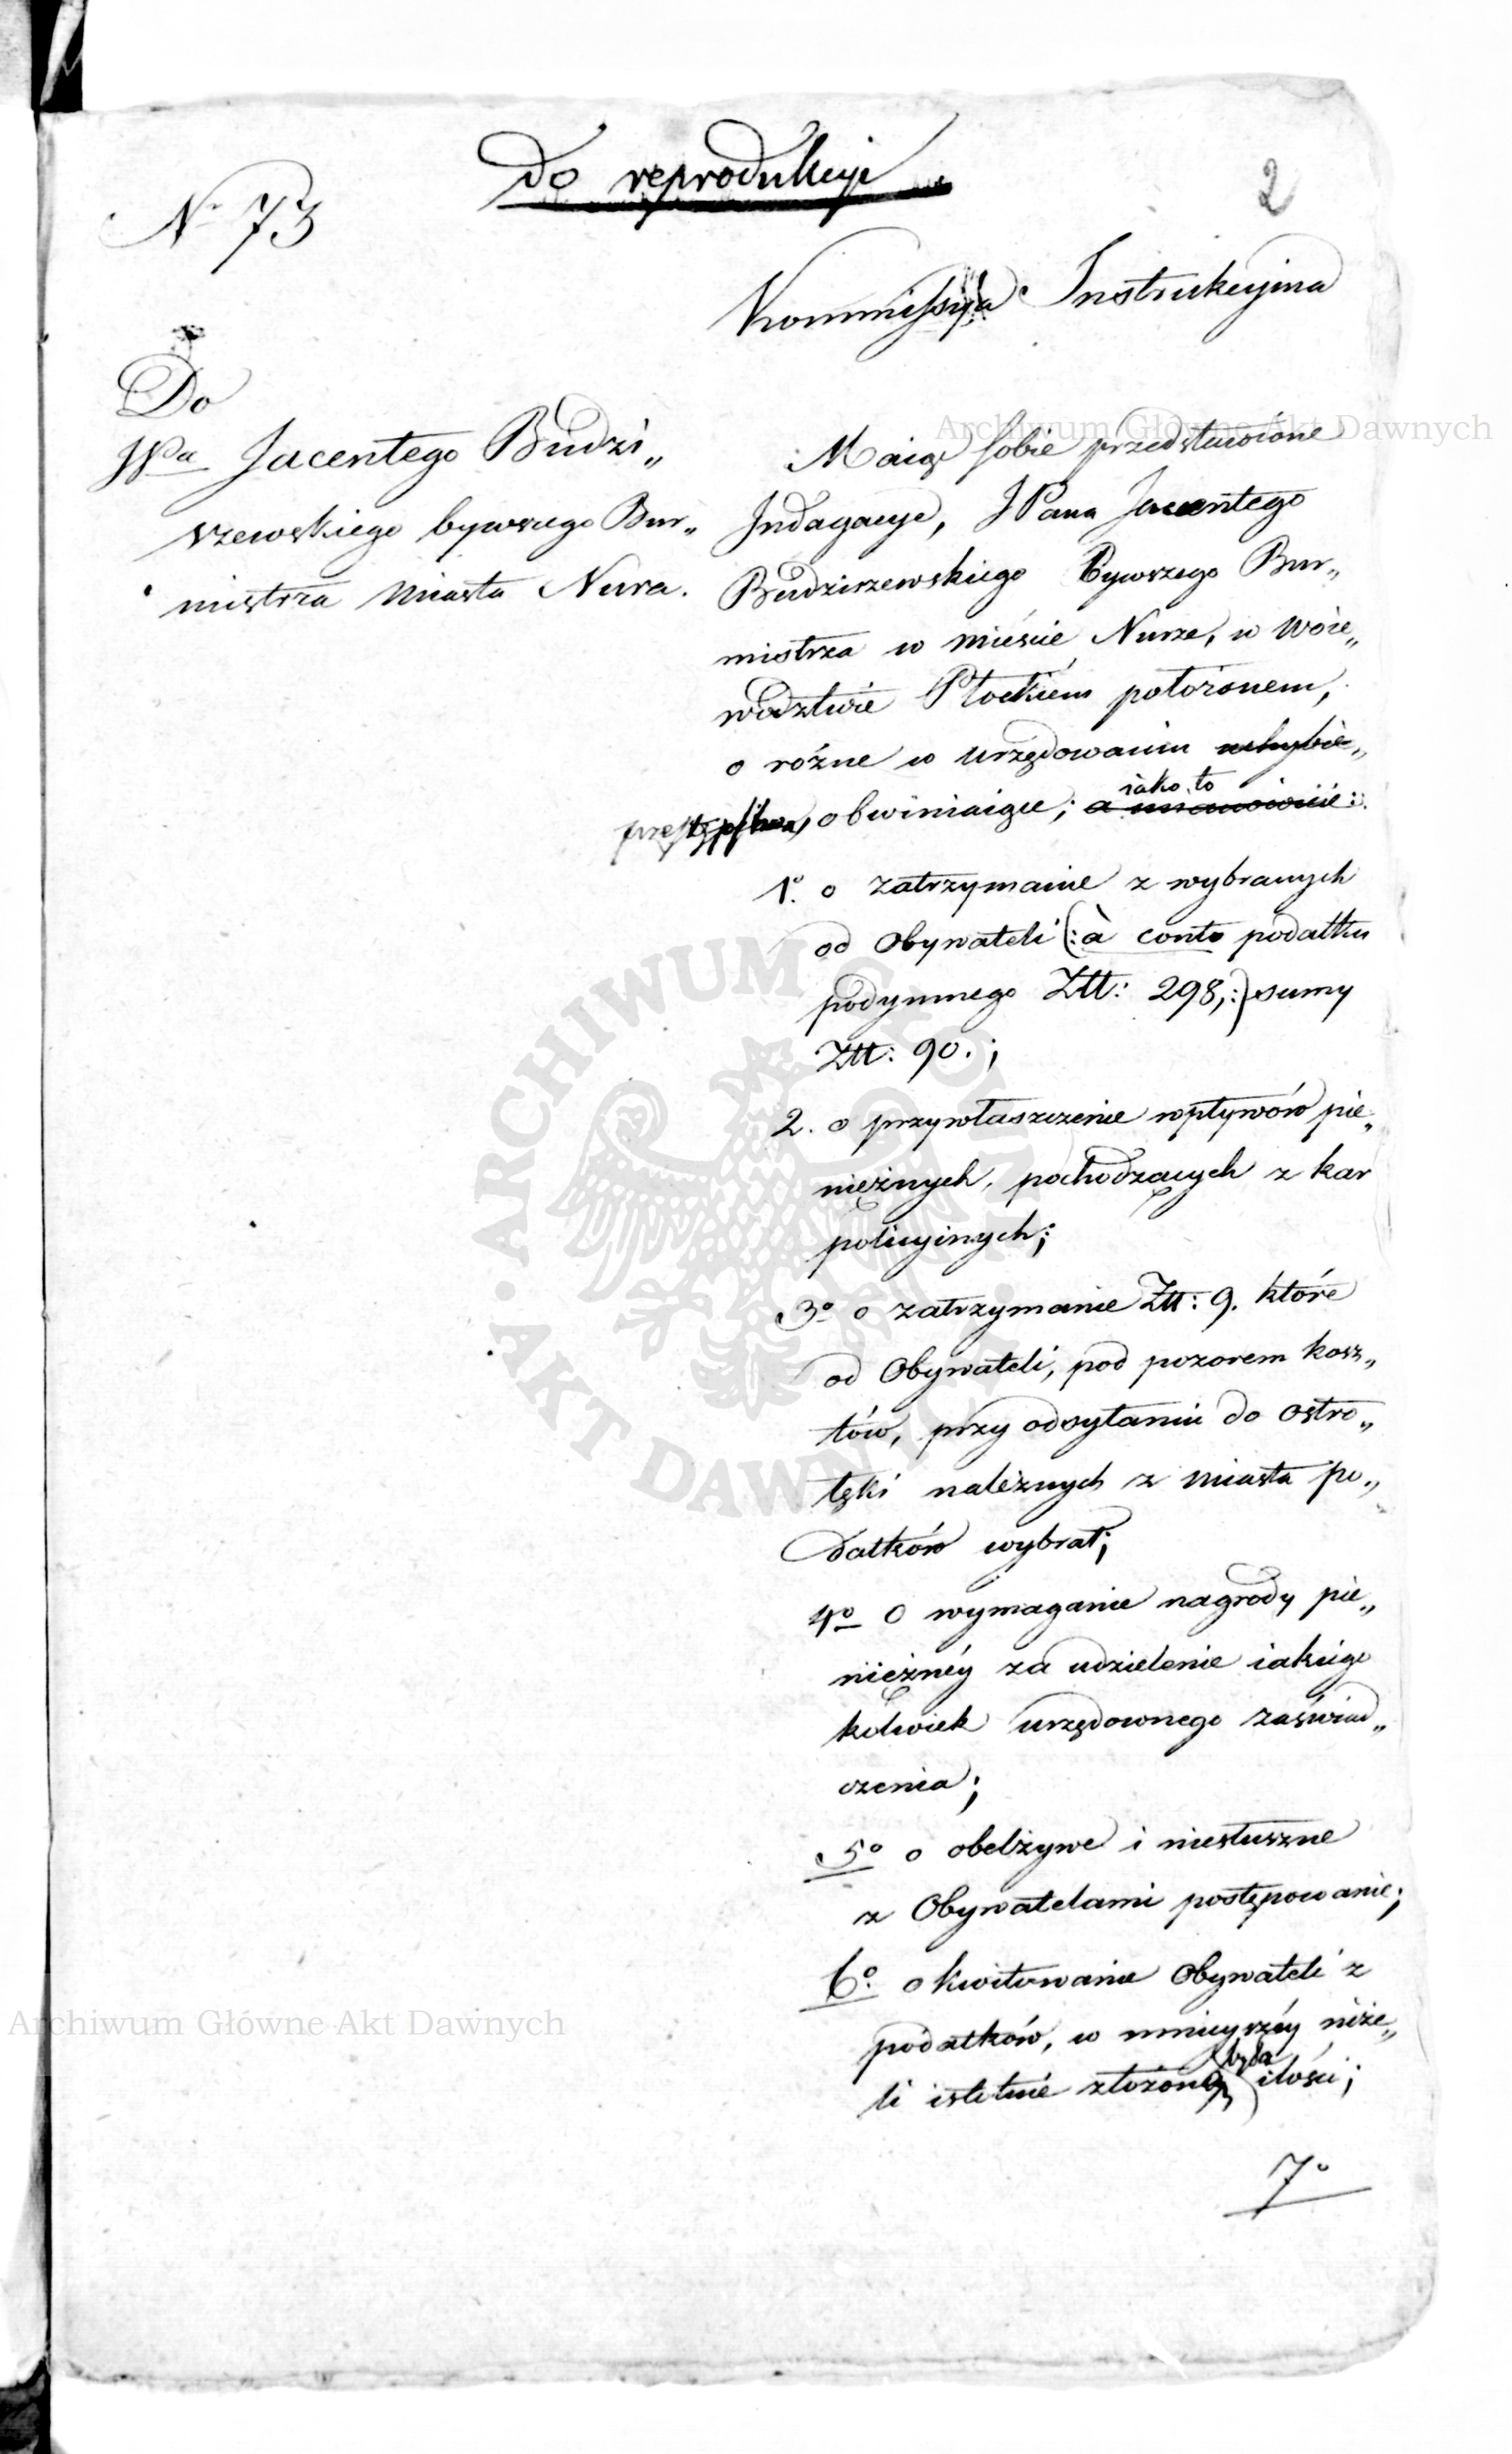 Do reprodukcyi
2
N 73
Kommissyia Instrukcyina
Do
JPa Jacentego Budzi„
szewskiego bywszego Bur„
mistrza Miasta Nura.
Maiąc sobie przedstawione
Indagacye, JPana Jacentego
Budziszewskiego Bywszego Bur„
mistrza w mieście Nurze, w Woie„
wodztwie Płockiem położonem,
o różne w urzędowaniu uchybie„
iako to
przestępstwa, obwiniaiące; a mianowicie:
1o. o zatrzymanie z wybranych
od Obywateli (: à conto podatku
podymnego Złł: 298,:) sumy
Złł: 90.;
2. o przywłaszczenie wpływów pie„
niężnych, pochodzących z kar
policyinych;
3o o zatrzymanie Złł: 9. które
od Obywateli, pod pozorem kosz„
tów, przy odsyłaniu do Ostro„
łęki należnych z miasta po„
datków wybrał;
4o O wymaganie nagrody pie„
niężnéy za udzielenie iakiego
kolwiek urzędownego zaświad„
czenia;
5o o obelżywe i niesłuszne
z Obywatelami postępowanie;
6o. o kwitowanie Obywateli z
podatków, w mnieyszéy niże„
była
li istotnie złożoną ilości;
7o
Archiwum Główne Akt Dawnych
Archiwum Główne Akt Dawnych
ARCHIWUM GŁÓWNE • AKT DAWNYCH •